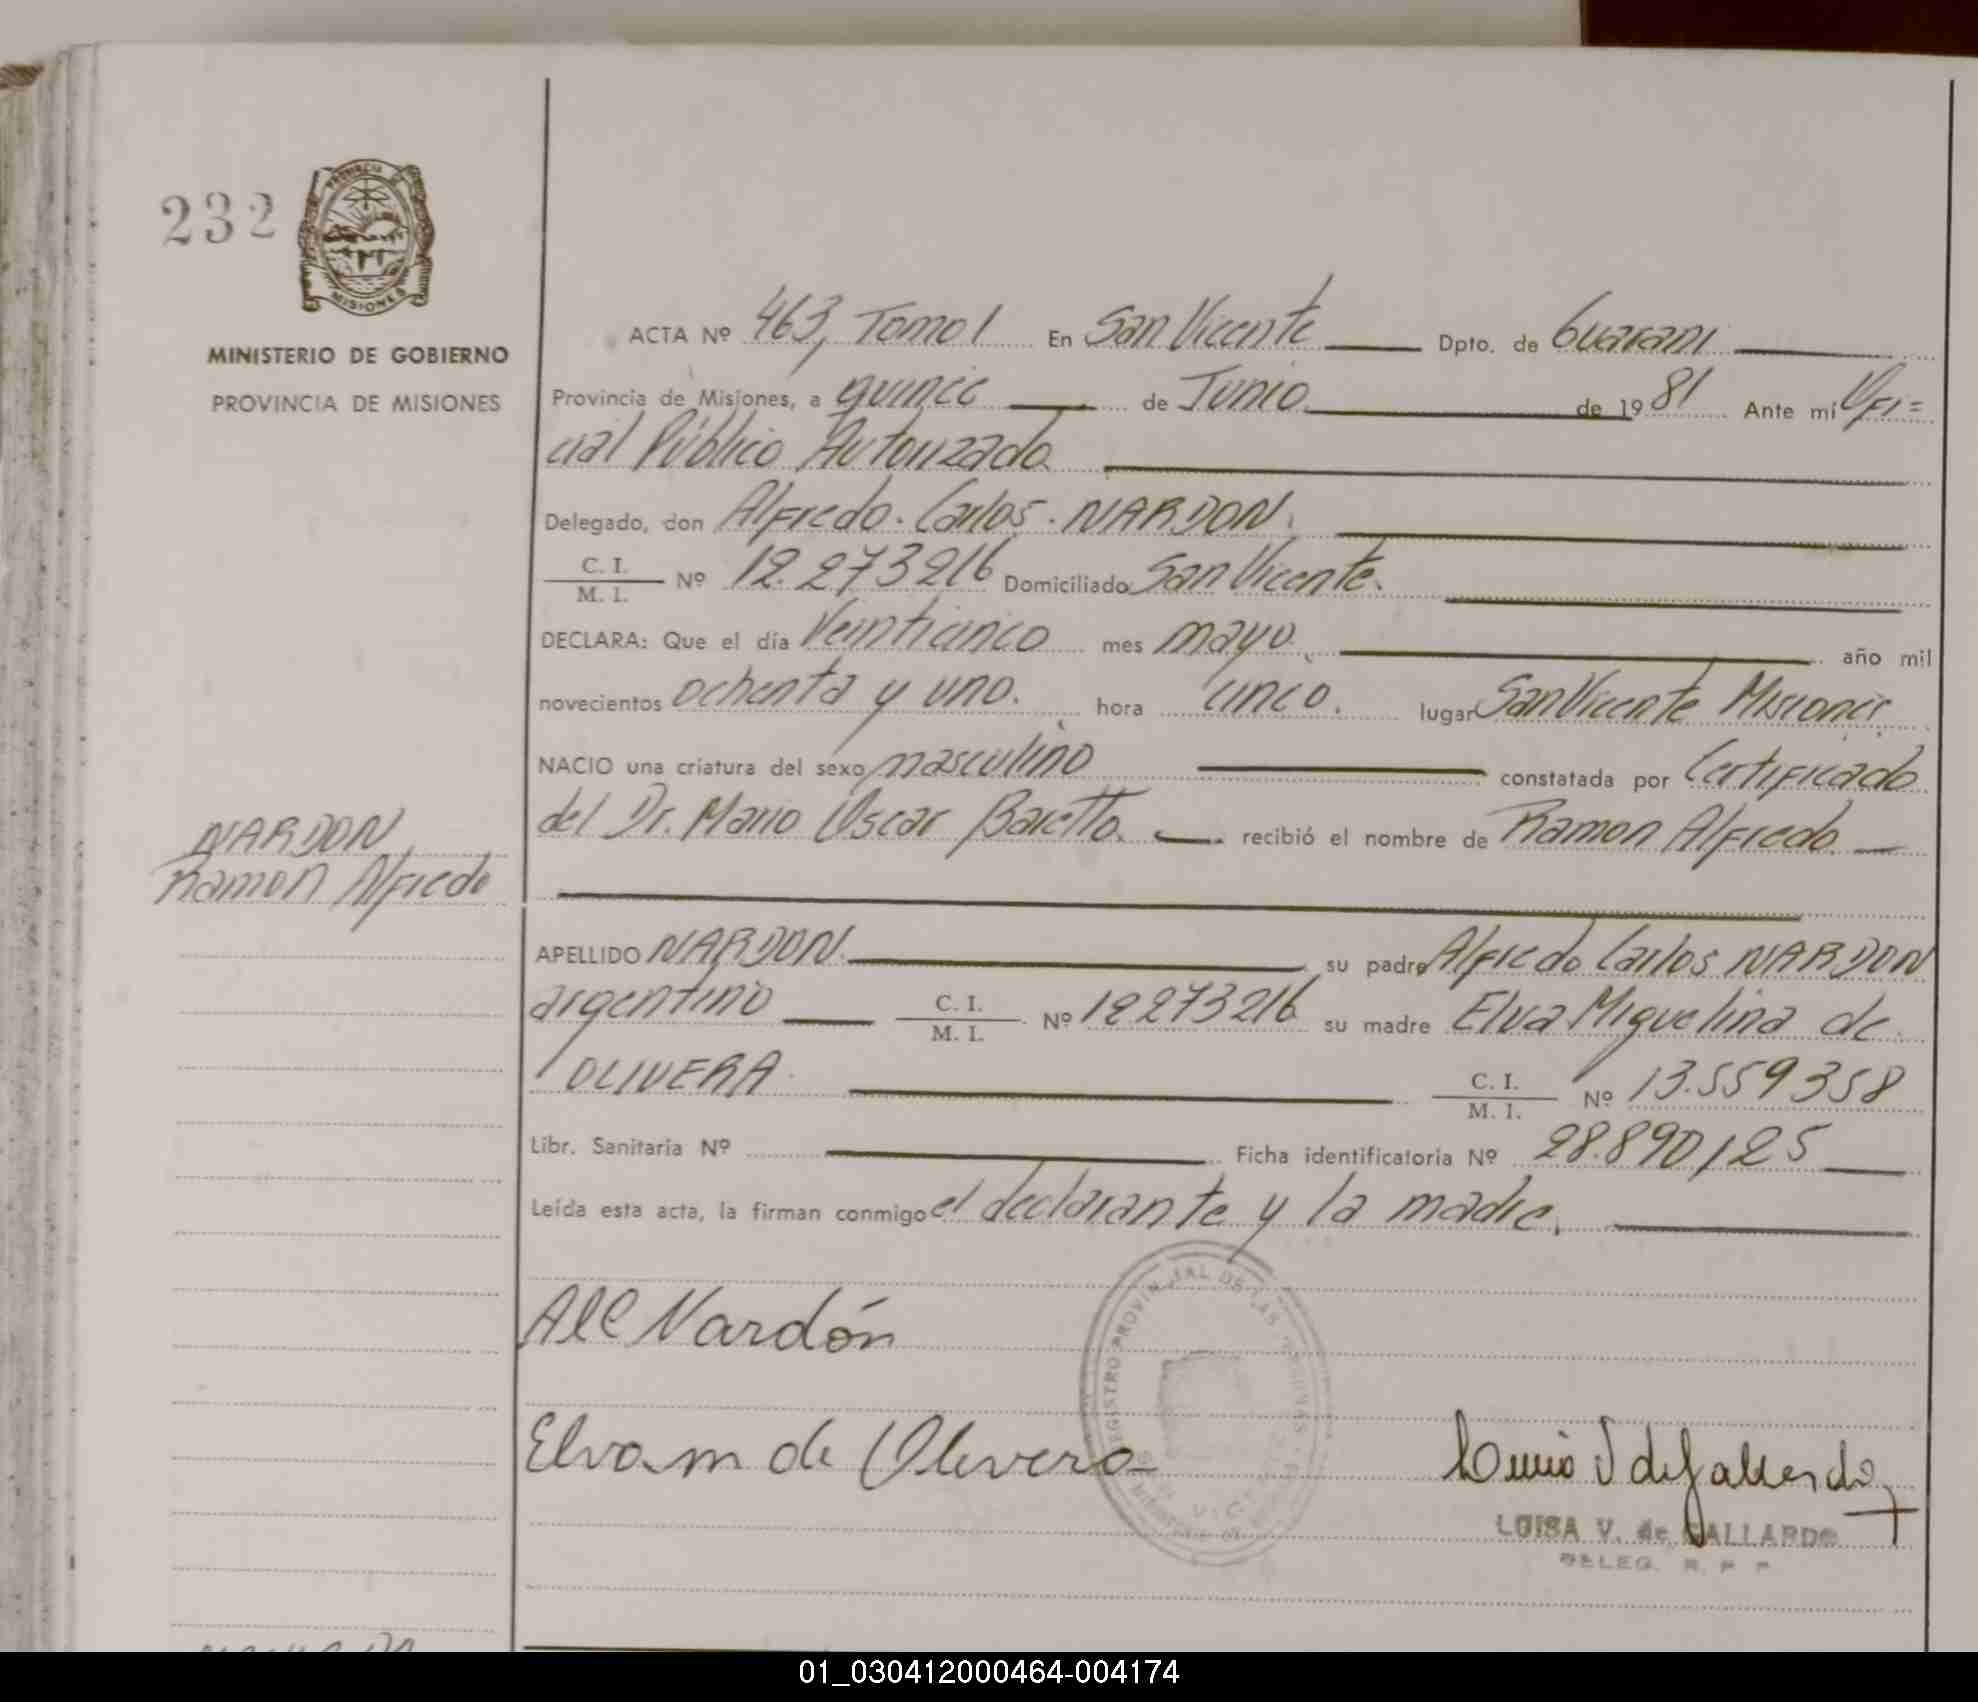 232
PROVINCIA DE
MISIONES
MINISTERIO DE GOBIERNO
PROVINCIA DE MISIONES
ACTA Nº 463, Tomo I En San Vicente Dpto. de Guarani
Provincia de Misiones, a quince de Junio de 1981 Ante mí Ofi=
cial Público Autorizado
Delegado, don Alfredo. Carlos. NARDON.
C. I.
M. I. Nº 12.273216 Domiciliado San Vicente.
DECLARA: Que el día Veinticinco mes mayo. año mil
novecientos ochenta y uno. hora cinco. lugar San Vicente Misiones
NACIO una criatura del sexo masculino constatada por Certificado
del Dr. Mario Oscar Baretto. recibió el nombre de Ramon Alfredo
NARDON
Ramon Alfredo
APELLIDO NARDON. su padre Alfredo Carlos NARDON
argentino C. I.
M. I. Nº 12273216 su madre Elva Miguelina de
OLIVERA C. I.
M. I. Nº 13.559358
Libr. Sanitaria Nº Ficha identificatoria Nº 28.890125
Leída esta acta, la firman conmigo el declarante y la madre.
Nardón
Elva m de Olivera
REGISTRO PROVINCIAL DE LAS PERSONAS
LUISA V. de GALLARDO
DELEG. R. P. P.
01_030412000464-004174